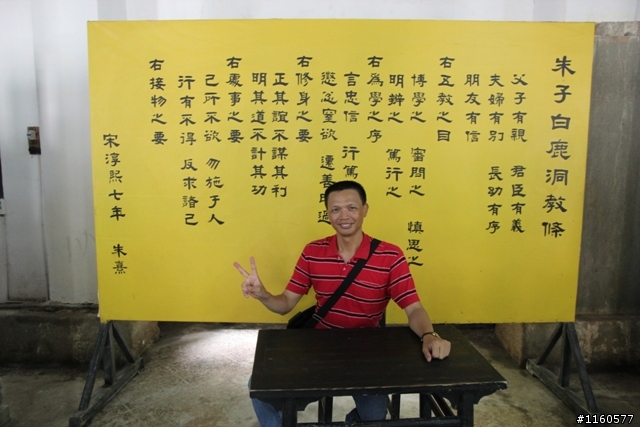 朱子白鹿洞教條
父子有親 君臣有義
夫婦有別 長幼有序
朋友有信
右五教之目
博學之 審問之 慎思之
明辨之 篤行之
右為學之序
言忠信 行篤
懲忿窒欲 遷善改過
右修身之要
正其誼不謀其利
明其道不計其功
右處事之要
己所不欲 勿施于人
行有不得 反求諸己
右接物之要
宋淳熙七年 朱熹
#1160577